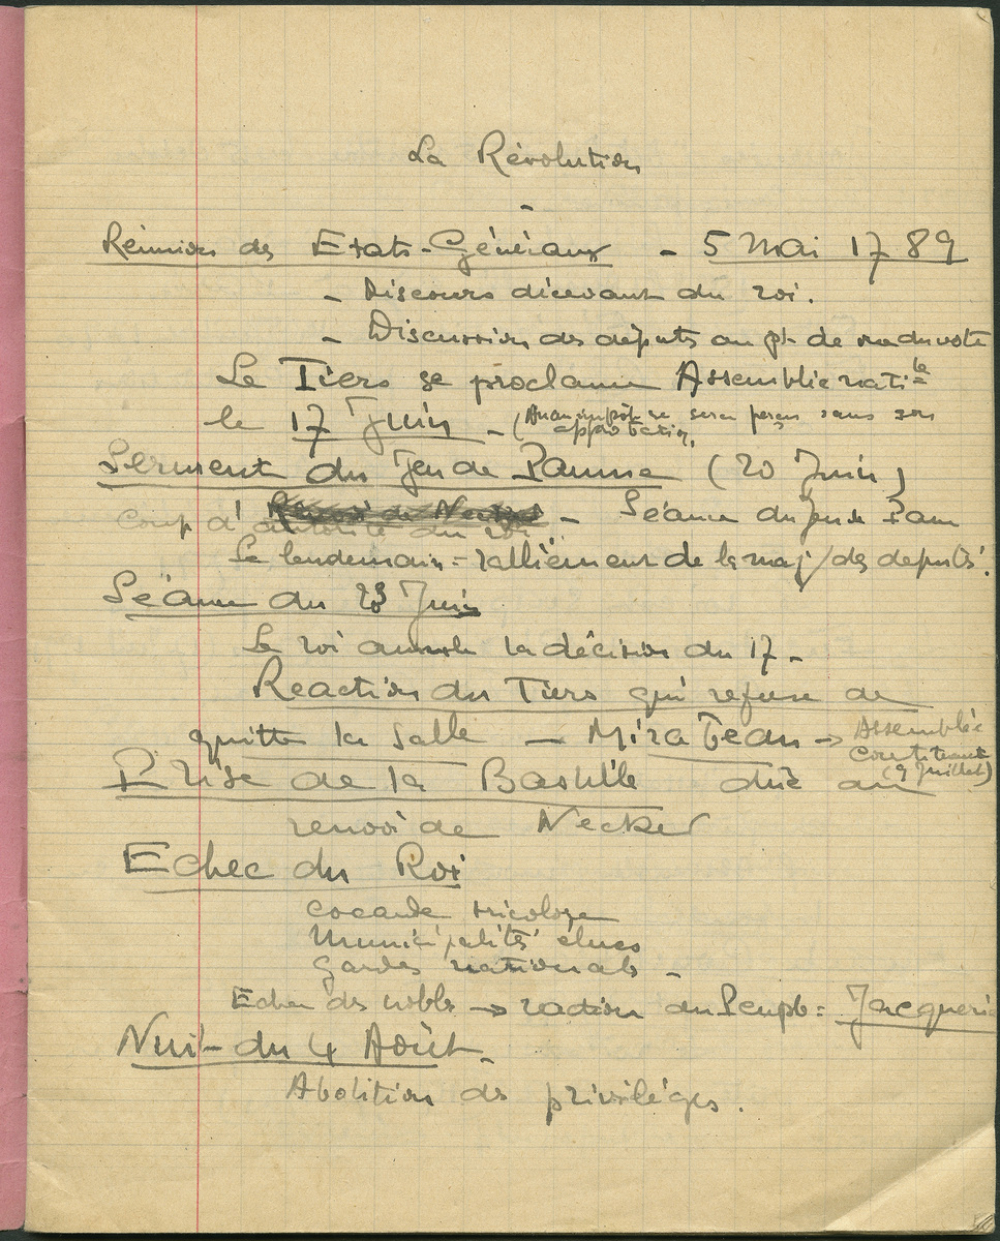 La Révolution
-
Réunion des Etats-Généraux - 5 Mai 1789
- Discours décevant du roi.
- Discussion des députés au pt de vue du vote
Le Tiers se proclame Assemblée natile
le 17 Juin - (Aucun impôt ne sera perçu sans son
approbation.
Serment du Jeu de Paume (20 Juin)
Renvoi de Necker - Séance du Jeu de Paume
Coup d'autorité du roi
Le lendemain = ralliement de la maj/des députés.
Séance du 23 Juin
Le roi annule la décision du 17 -
Reaction du Tiers qui refuse de
quitter la salle - Mirabeau → Assemblée
Constituante
(9 Juillet)
Prise de la Bastille due au
renvoi de Necker
Echec du Roi
cocarde tricolore
Municipalités élues
gardes nationales -
Echec des nobles → réaction du Peuple = Jacquerie
Nuit du 4 Août -
Abolition des privilèges.